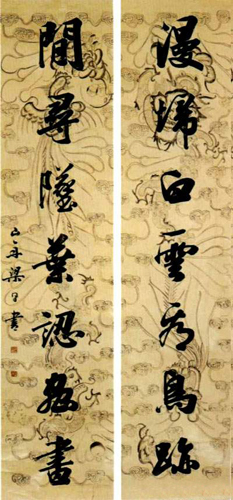 漫掃白雲看鳥跡
閒尋墜葉認蟲書
山舟梁同書